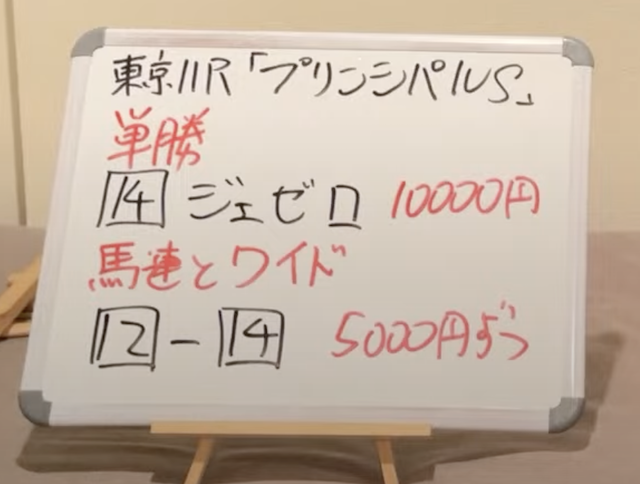 東京11R「プリンシパルS」
単勝
14 ジェゼロ 10000円
馬連とワイド
12-14 5000円ずつ